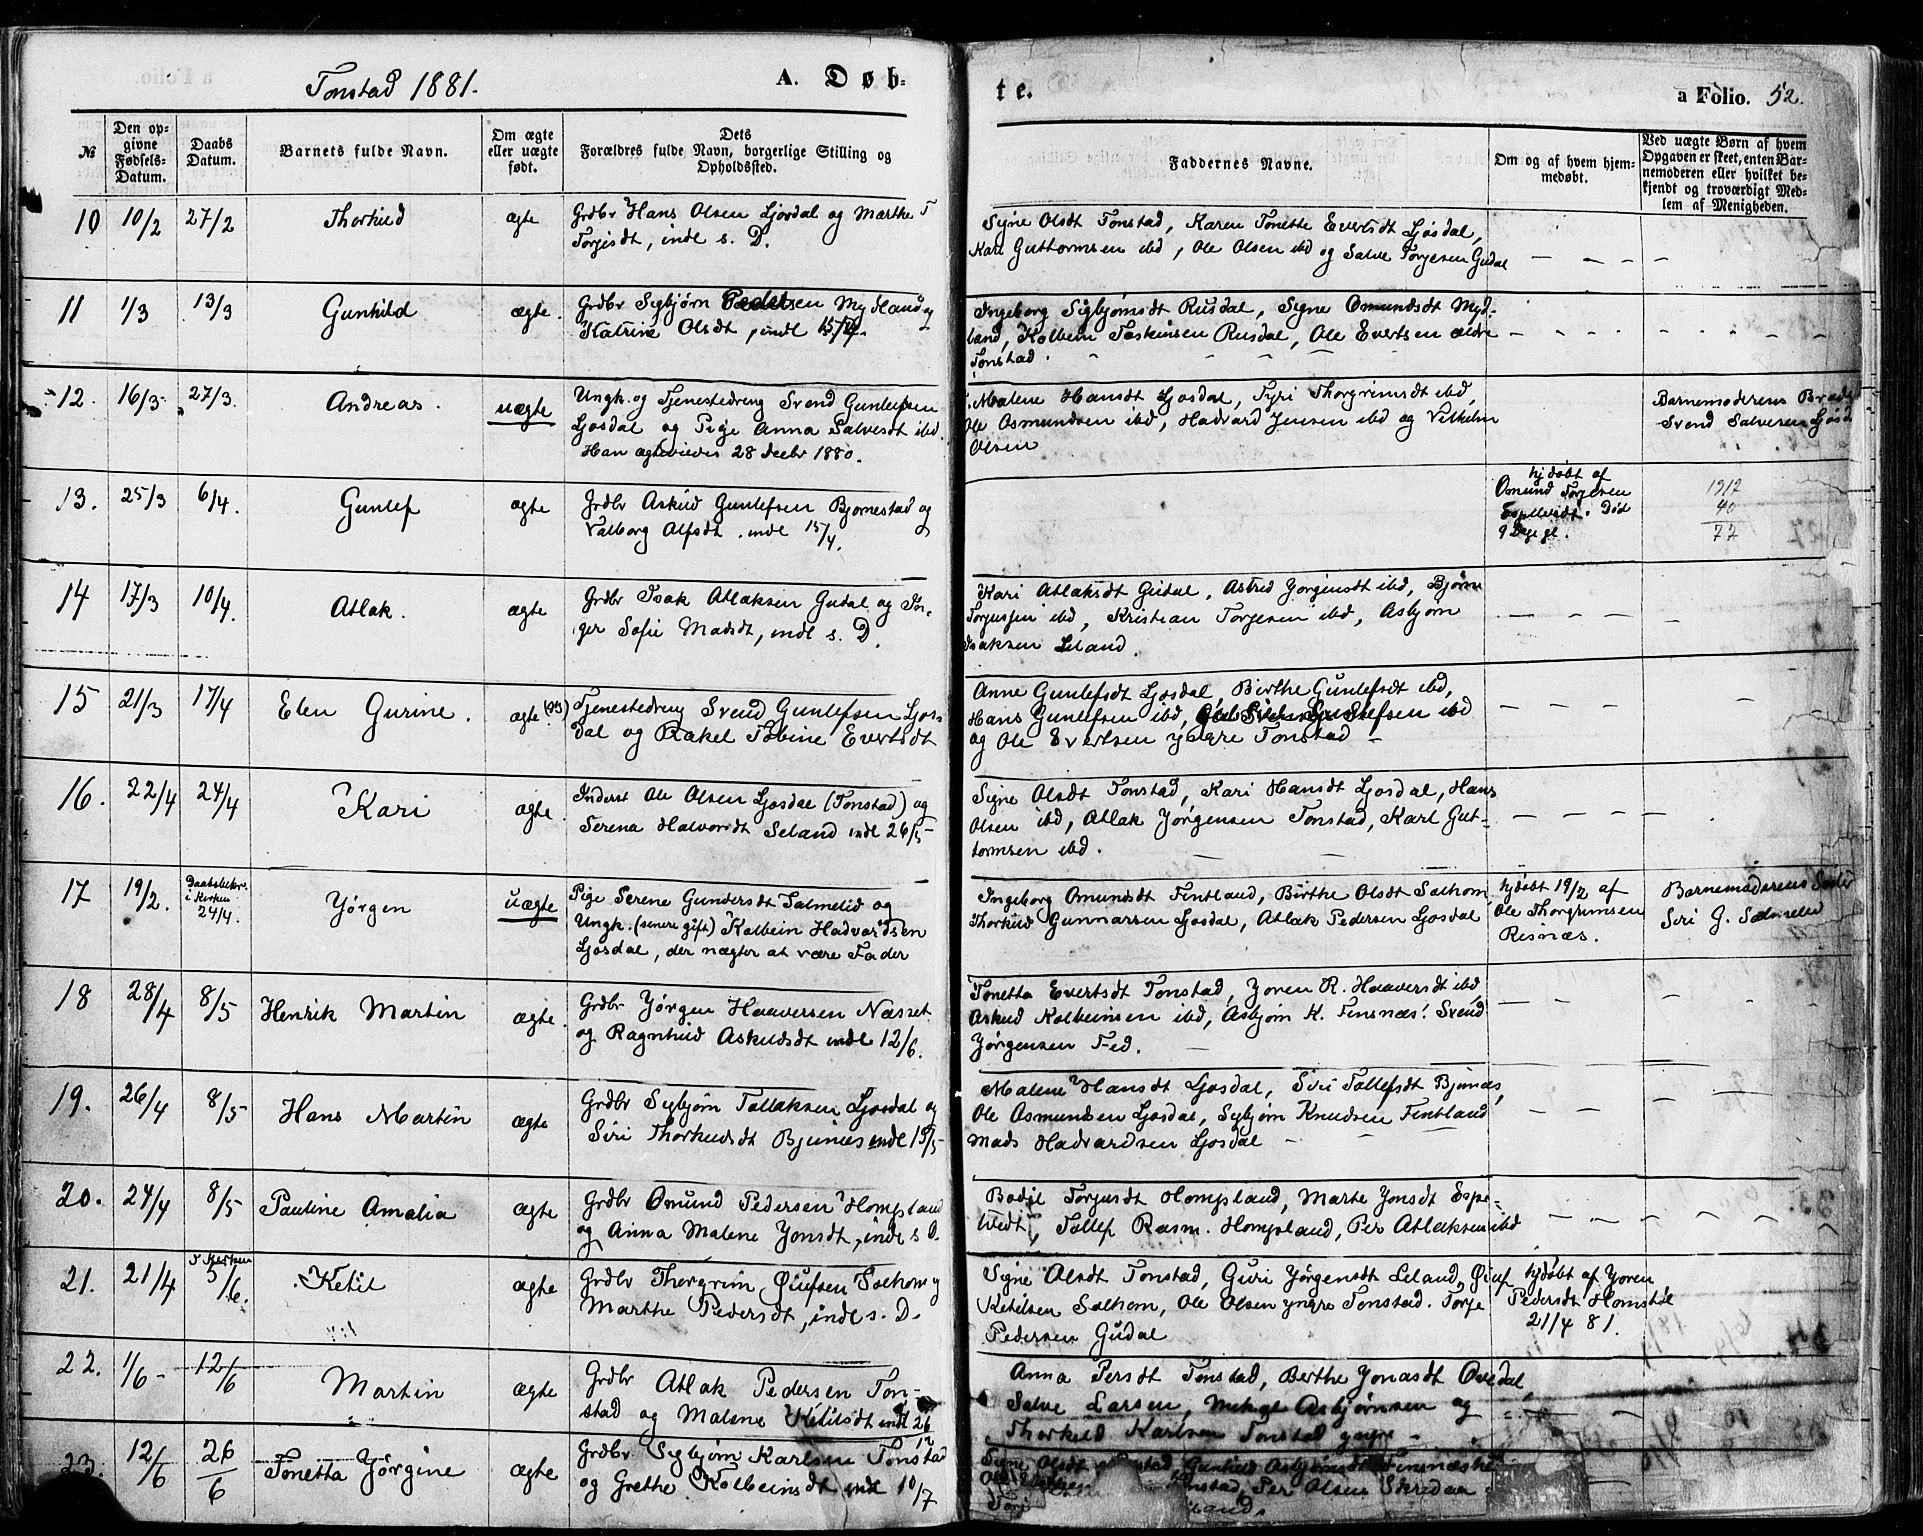 Tonstad 1881.
A. Døb-
te.
a Folio. 52.
№
Den op-
givne
Fødsels-
Datum.
Daabs
Datum.
Barnets fulde Navn.
Om ægte
eller uægte
født.
Dets
Forældres fulde Navn, borgerlige Stilling og
Opholdssted.
Faddernes Navne.
Om og af hvem hjem-
medøbt.
Ved uægte Børn af hvem
Opgaven er skeet, enten Bar-
nemoderen eller hvilket be-
kjendt og troværdigt Med-
lem af Menigheden.
10 10/2 27/2 Thorkild ægte
Grdbr Hans Olsen Ljosdal og Marthe T
Torjisdt, indl s. D.
Signe Olsdt Tonstad, Karen Tonette Evertsdt Ljosdal,
Karl Guttormsen ibd, Ole Olsen ibd og Salve Torjesen Gudal
11 1/3 13/3 Gunhild ægte
Grdbr Sigbjørn Pedersen Mydland og
Katrine Olsdt, indl 15/4.
Ingeborg Sigbjørnsdt Rusdal, Signe Omundsdt Myd-
land, Kolbein Rusdal, Ole Evertsen ældre
Tonstad.
12. 16/3 27/3. Andreas. uægte
Ungk. og Tjenestedreng Svend Gunlefsen
Ljosdal og Pige Anna Salvesdt ibd.
Han ægteviedes 28 Decbr 1880.
Malene Hansdt Ljosdal, Tyri Thorgrimsdt ibd,
Ole Osmundsen ibd, Hadvard Jensen ibd og Vilhelm
Olsen
Barnemoderens
Svend Salvesen
13. 25/3 6/4. Gunlef ægte
Grdbr Askild Gunlefsen Bjornestad og
Valborg Alfsdt. indl 15/4.
hjdøbt af
Omund Torjesen
Død
9 Dage gl.
1917
40
77
14 17/3 10/4. Atlak. ægte
Grdbr Isak Atlaksen Gudal og Tor-
ger Sofie Madsdt, indl s. D.
Kari Atlaksdt Gudal, Astred Jørgensdt ibd, Bjørn
Torjussen ibd, Kristian Torjesen ibd, Asbjørn
Isaksen Leland.
15 21/3 17/4 Elen Gurine. ægte
Tjenestedreng Svend Gunlefsen Ljos-
dal og Rakel Tobine Evertsdt
Anne Gunlefsdt Ljosdal, Birthe Gunlefsdt ibd,
Hans Gunlefsen ibd, ibd
og Ole Evertsen yngre Tonstad
16. 22/4 24/4 Kari ægte.
Inderst Ole Olsen Ljosdal (Tonstad) og
Serena Halvorsdt Seland indl 26/5
Signe Olsdt Tonstad, Kari Hansdt Ljosdal, Hans
Olsen ibd, Atlak Jørgensen Tonstad, Karl Gut-
tormsen ibd.
17 19/2. Daabsbekr.
i Kirken
24/4. Yørgen uægte
Pige Serene Gundersdt Salmelid og
Ungk. (senere gift) Kolbein Hadvardsen
Ljosdal, der nægter at være Fader
Ingeborg Omundsdt Fintland, Birthe Olsdt Salhom
Thorkild Gunnarsen Ljosdal, Atlak Pedersen Ljosdal
hjdøbt 19/2 af
Ole Thorgrimsen
Risnæs.
Barnemoderens Søster
Siri G. Salmelid
18 28/4 8/5 Henrik Martin ægte.
Grdbr Yørgen Haaversen Næsset
og Ragnhild Askildsdt indl 12/6.
Tonetta Evertsdt Tonstad, Yoren R. Haaversdt ibd,
Askild Kolbeinsen ibd, Asbjørn K. Finsnæs. Svend
Yørgensen Fed.
19. 26/4 8/5 Hans Martin ægte
Grdbr Sigbjørn Tollaksen Ljosdal og
Siri Thorkildsdt Bjunes indl 15/5
Malene Hansdt Ljosdal, Siri Tollefsdt Bjunæs,
Ole Osmundsen Ljosdal, Sigbjørn Knudsen Fintland
Mads Hadvardsen Ljosdal
20. 24/4 8/5 Pauline Amalia ægte
Grdbr Omund Pedersen Hompland
og Anna Malene Yonsdt, indl s D.
Bodil Torjusdt Hompland, Marte Yonsdt Espe-
tvedt, Tollef Rasm. Hompland, Per Atlaksen ibd
21. 21/4 I Kirken
5/6. Ketil ægte
Grdbr Thorgrim Øiufsen Salhom og
Marthe Pedersdt, indl s. D.
Signe Olsdt Tonstad, Guri Yørgensdt Leland, Øiuf
Ketilsen Salhom, Ole Olsen yngre Tonstad. Torje
Pedersen Gudal
hjdøbt af Yoren
Pedersdt
21/4 81.
22. 1/6 12/6 Martin ægte
Grdbr Atlak Pedersen Ton-
stad og Malene Ketilsdt indl 26
Anna Persdt Tonstad, Berthe Yonasdt Ousdal,
Salve Larsen, Mikal Asbjørnsen og
Thorkeld Karlsen Tonstad yngre
23. 12/6 26/6 Tonetta Yørgine ægte
Grdbr Sigbjørn Karlsen Tonstad
og Grethe Kolbeinsdt indl 10/7
Signe Olsdt Gunhild Asbjørnsdt Finsnæs
Tonstad, Per Olsen Skredaa